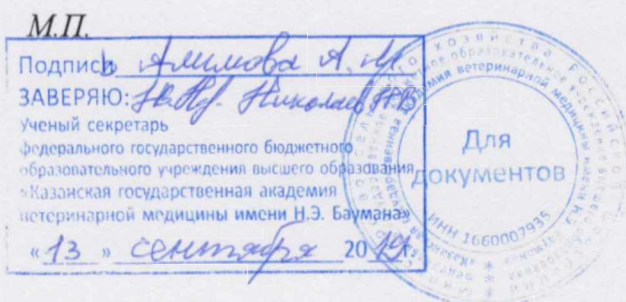 М.П.
Подпись Алимова А.М.
ЗАВЕРЯЮ: Николаев Н.В
Ученый секретарь
федерального государственного бюджетного
образовательного учреждения высшего образования
«Казанская государственная академия
ветеринарной медицины имени Н.Э. Баумана»
«13» сентября 2019г.
Для
документов
ИНН 1660007935